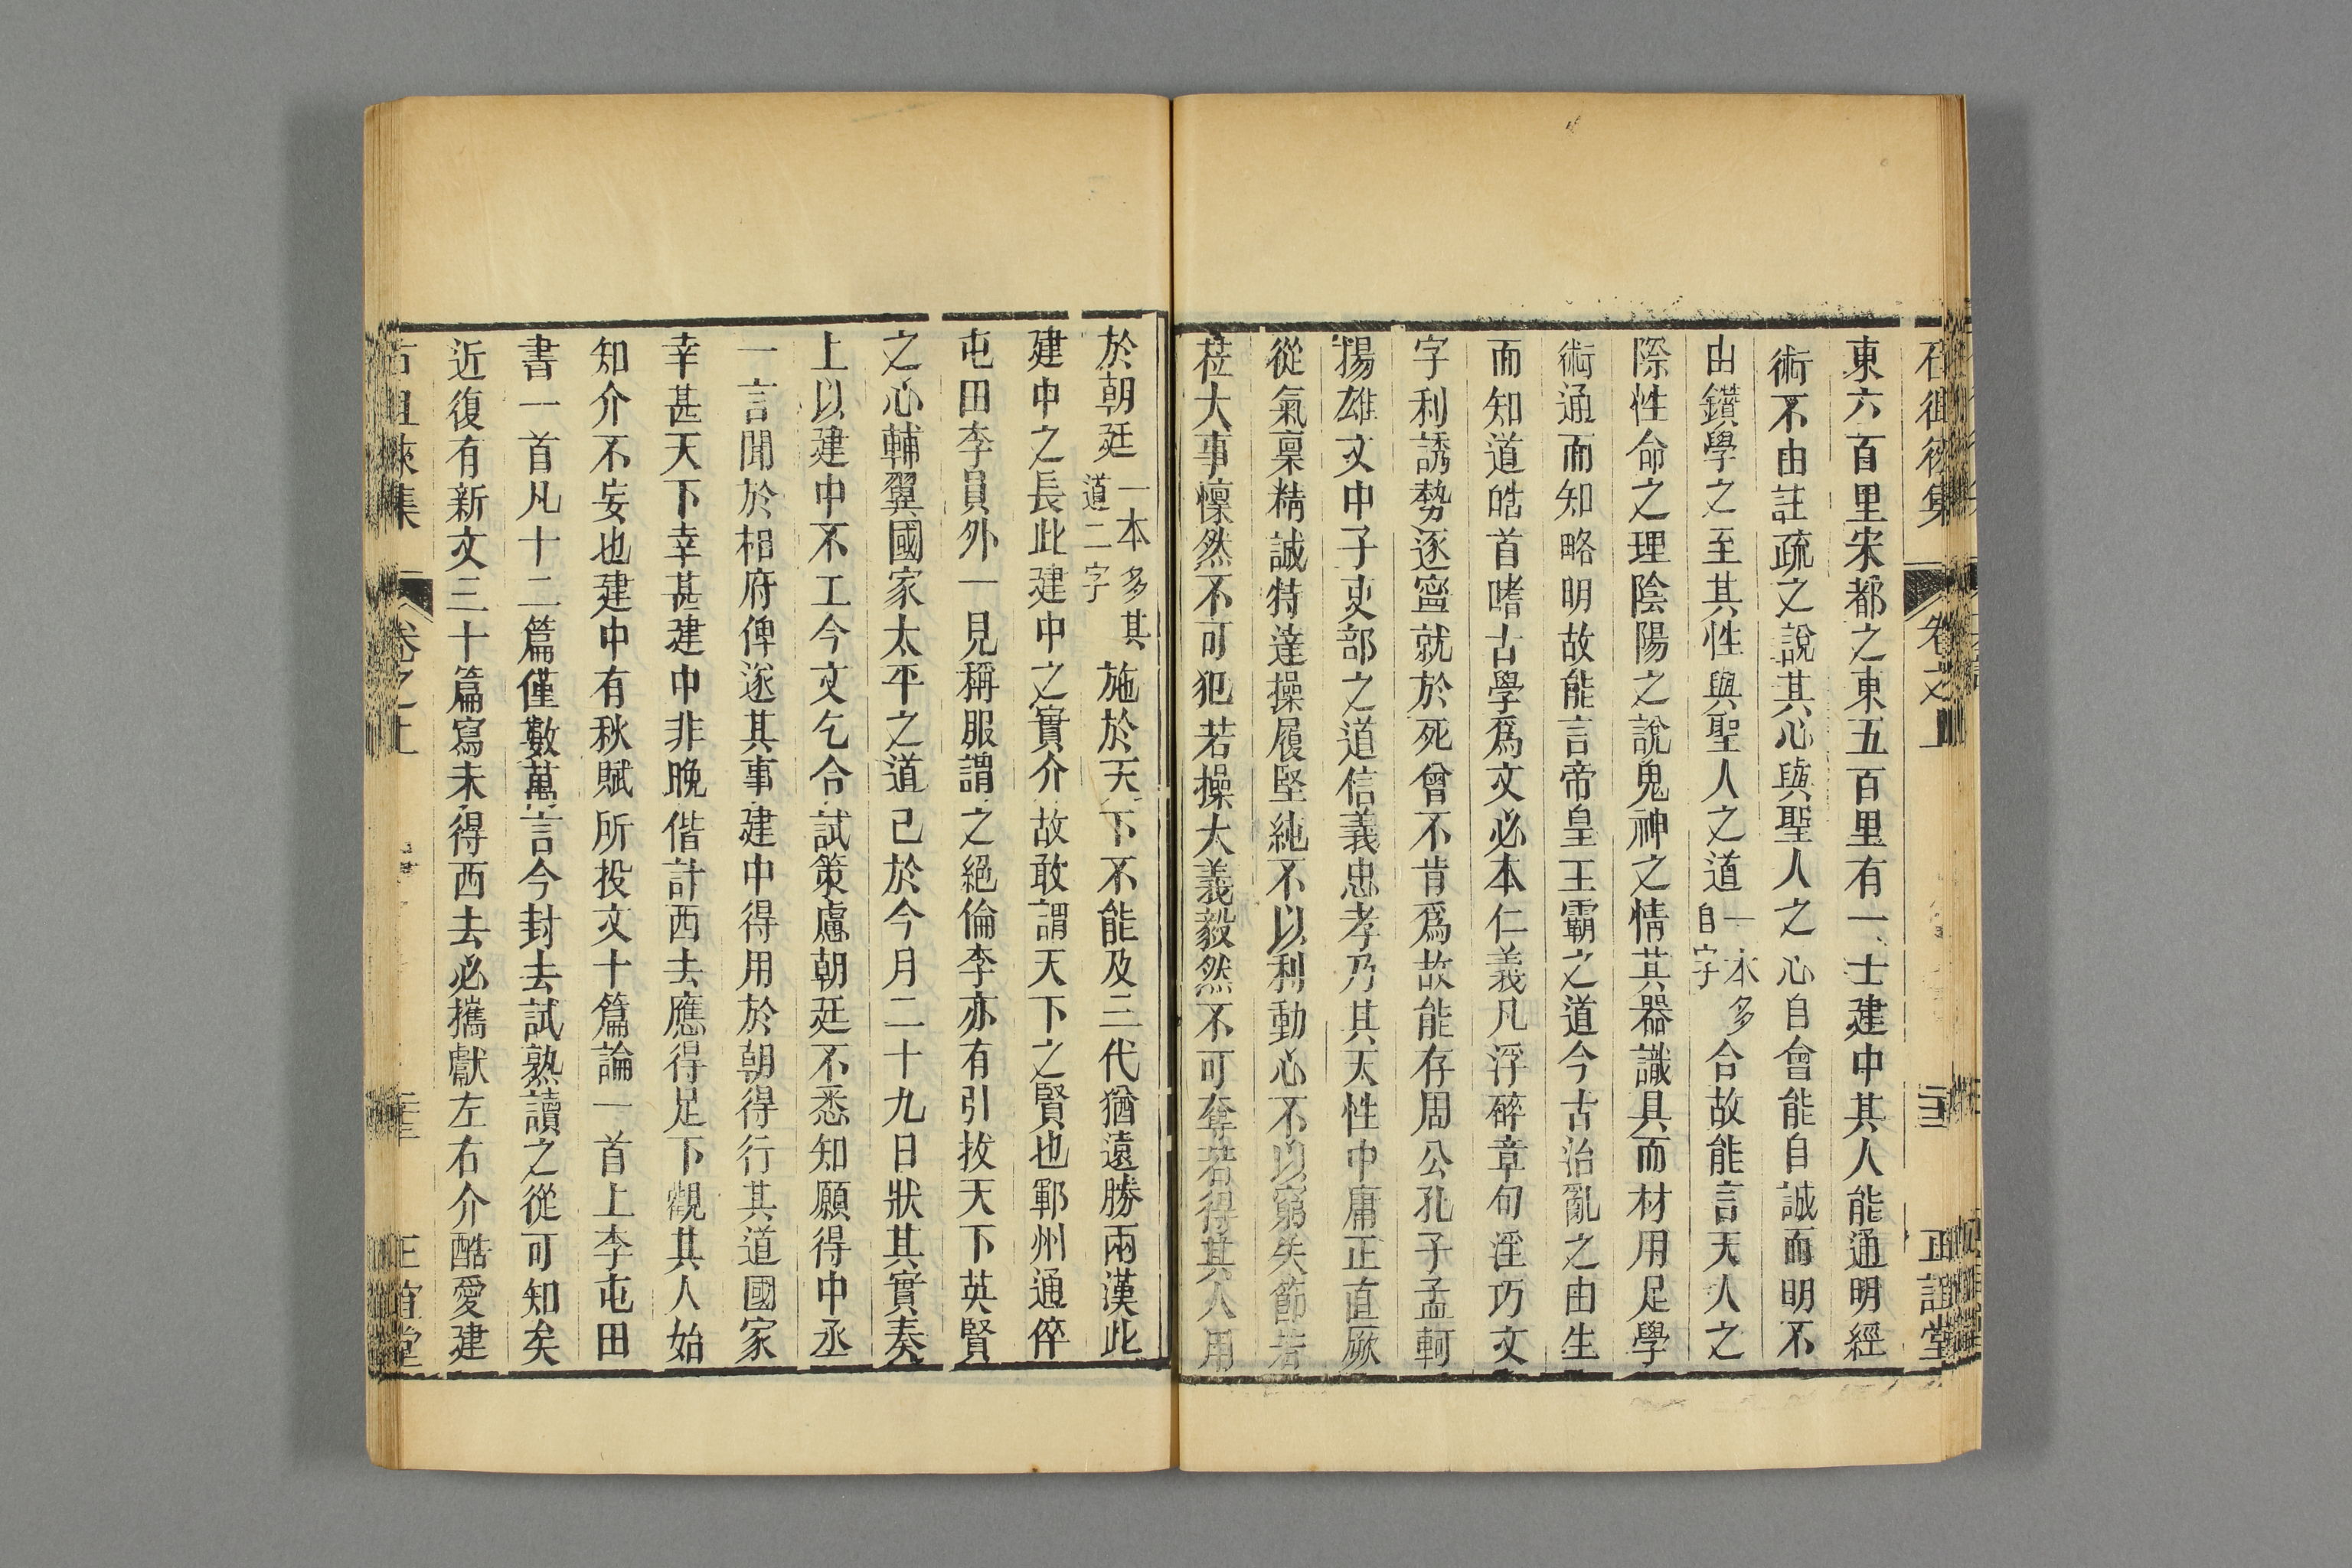 東六百里宋都之東五百里有一士建中其人能通明經
術不由註疏之說其心與聖人之心自會能自誠而明不
由鑽學之至其性與聖人之道一本多自字合故能言天人之
際性命之理陰陽之說鬼神之情其器識具而材用足學
術通而知略明故能言帝皇王霸之道今古治亂之由生
而知道皓首嗜古學爲文必本仁義凡浮碎章句淫巧文
字利誘勢逐寧就於死曾不肯爲故能存周公孔子孟軻
揚雄文中子吏部之道信義忠孝乃其天性中庸正直厥
從氣稟精誠特達操履堅純不以利動心不以窮失節若
莅大事懍然不可犯若操大義毅然不可奪若得其人用
於朝廷一本多其道二字施於天下不能及三代猶遠勝兩漢此
建中之長此建中之實介故敢謂天下之賢也鄆州通倅
屯田李員外一見稱服謂之絕倫李亦有引拔天下英賢
之心輔翼國家太平之道已於今月二十九日狀其實奏
上以建中不工今文乞合試策慮朝廷不悉知願得中丞
一言聞於相府俾遂其事建中得用於朝得行其道國家
幸甚天下幸甚建中非晚偕計西去應得足下觀其人始
知介不妄也建中有秋賦所投文十篇論一首上李屯田
書一首凡十二篇僅數萬言今封去試熟讀之從可知矣
近復有新文三十篇寫未得西去必攜獻左右介酷愛建
石徂徠集 卷之上 正誼堂